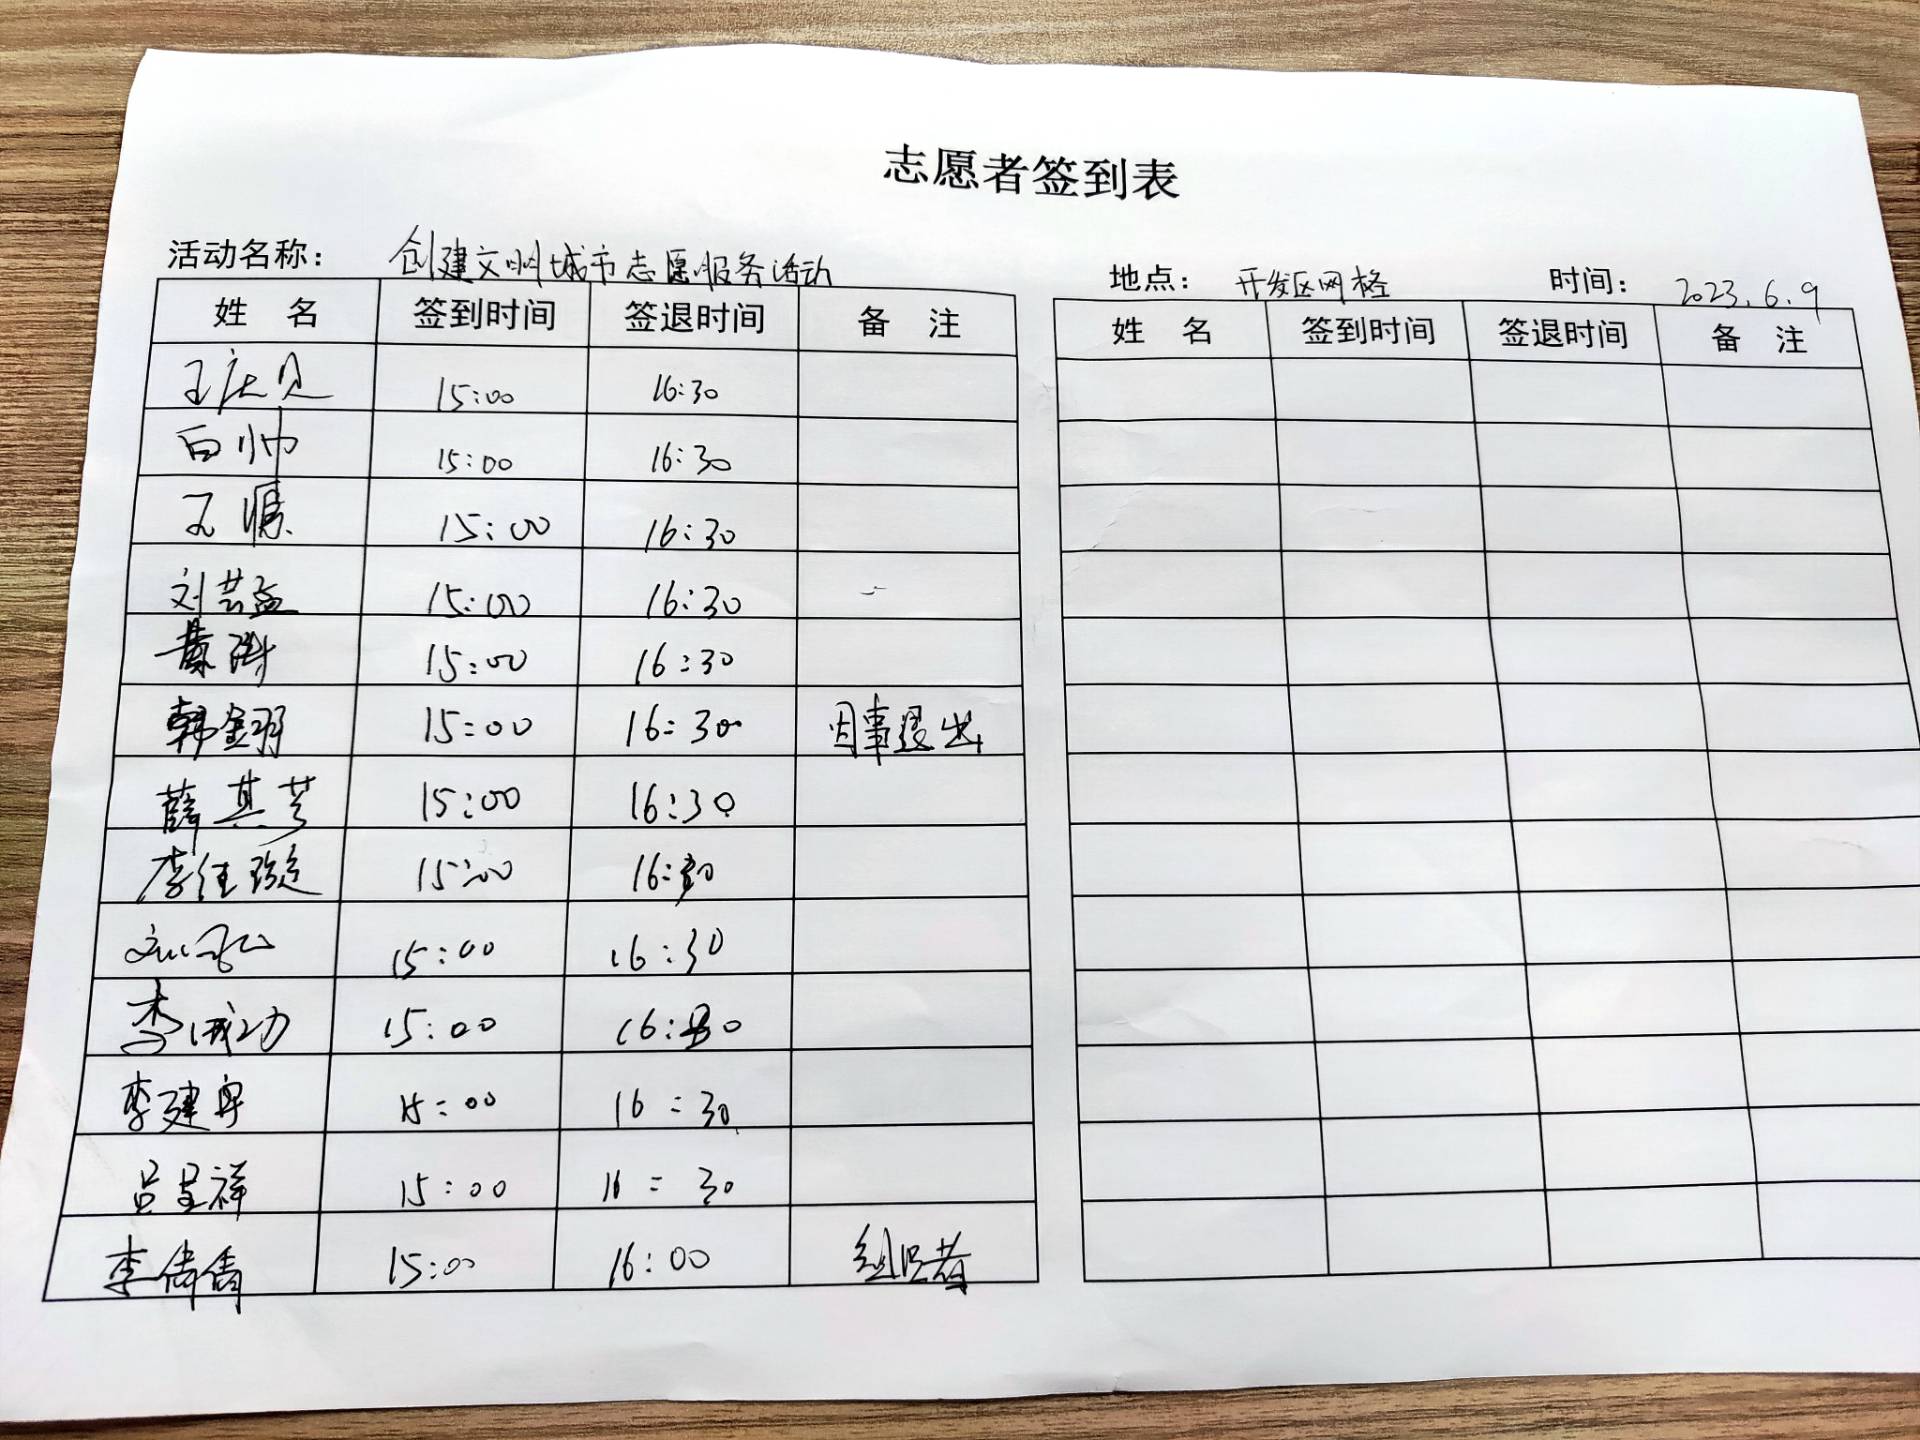 志愿者签到表
活动名称： 创建文明城市志愿服务活动 地点： 开发区网格 时间： 2023.6.9
姓 名 签到时间 签退时间 备 注 姓 名 签到时间 签退时间 备 注
15:00 16:30
白帅 15:00 16:30
王 15:00 16:30
刘芸孟 15:00 16:30
15:00 16:30
韩金羽 15:00 16:30 因事退出
薛其芳 15:00 16:30
李佳璇 15:00 16:30
15:00 16:30
李成功 15:00 16:30
李建宇 15:00 16:30
吕呈祥 15:00 16:30
李倩倩 15:00 16:00 组织者